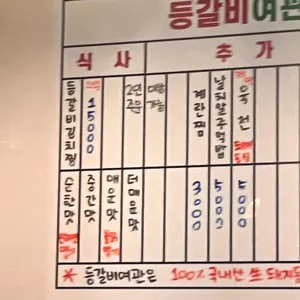 등갈비여관
식사
추가
등갈비김치찜
15000
2인
주문
가능
계란찜
3000
날치알주먹밥
5000
육전
5000
순한맛
중간맛
매운맛
더매운맛
* 등갈비여관은 100% 국내산 生 돼지등